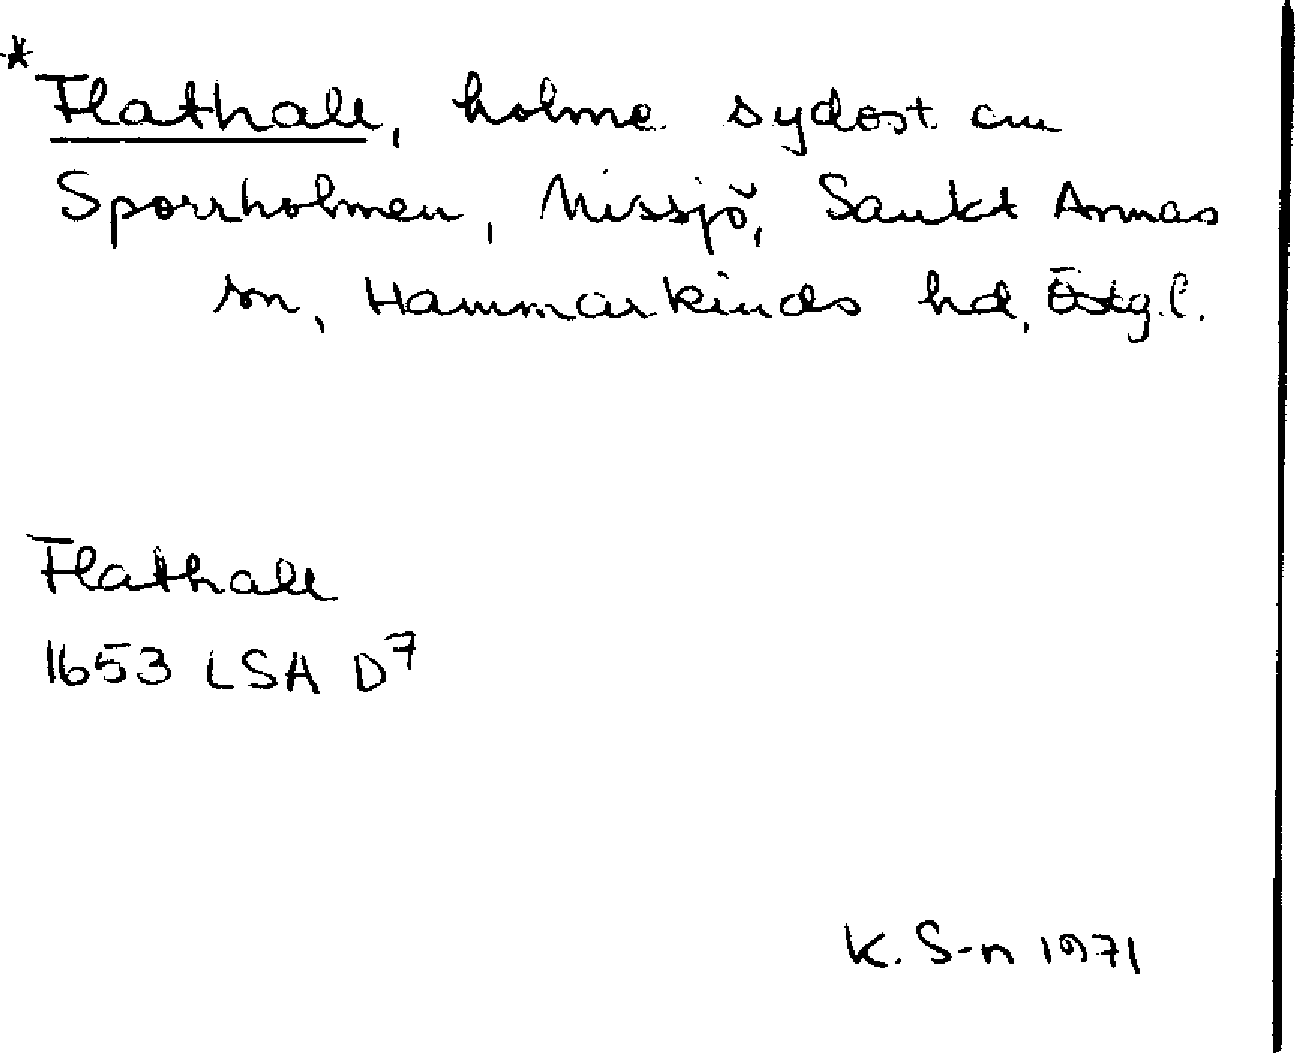 *
Flathall, holme sydost om
Sporrholmen, Missjö, Sankt Annas
sn, Hammarkinds hd, Östg.l.
Flathall
1653 LSA D7
K. S-n 1971